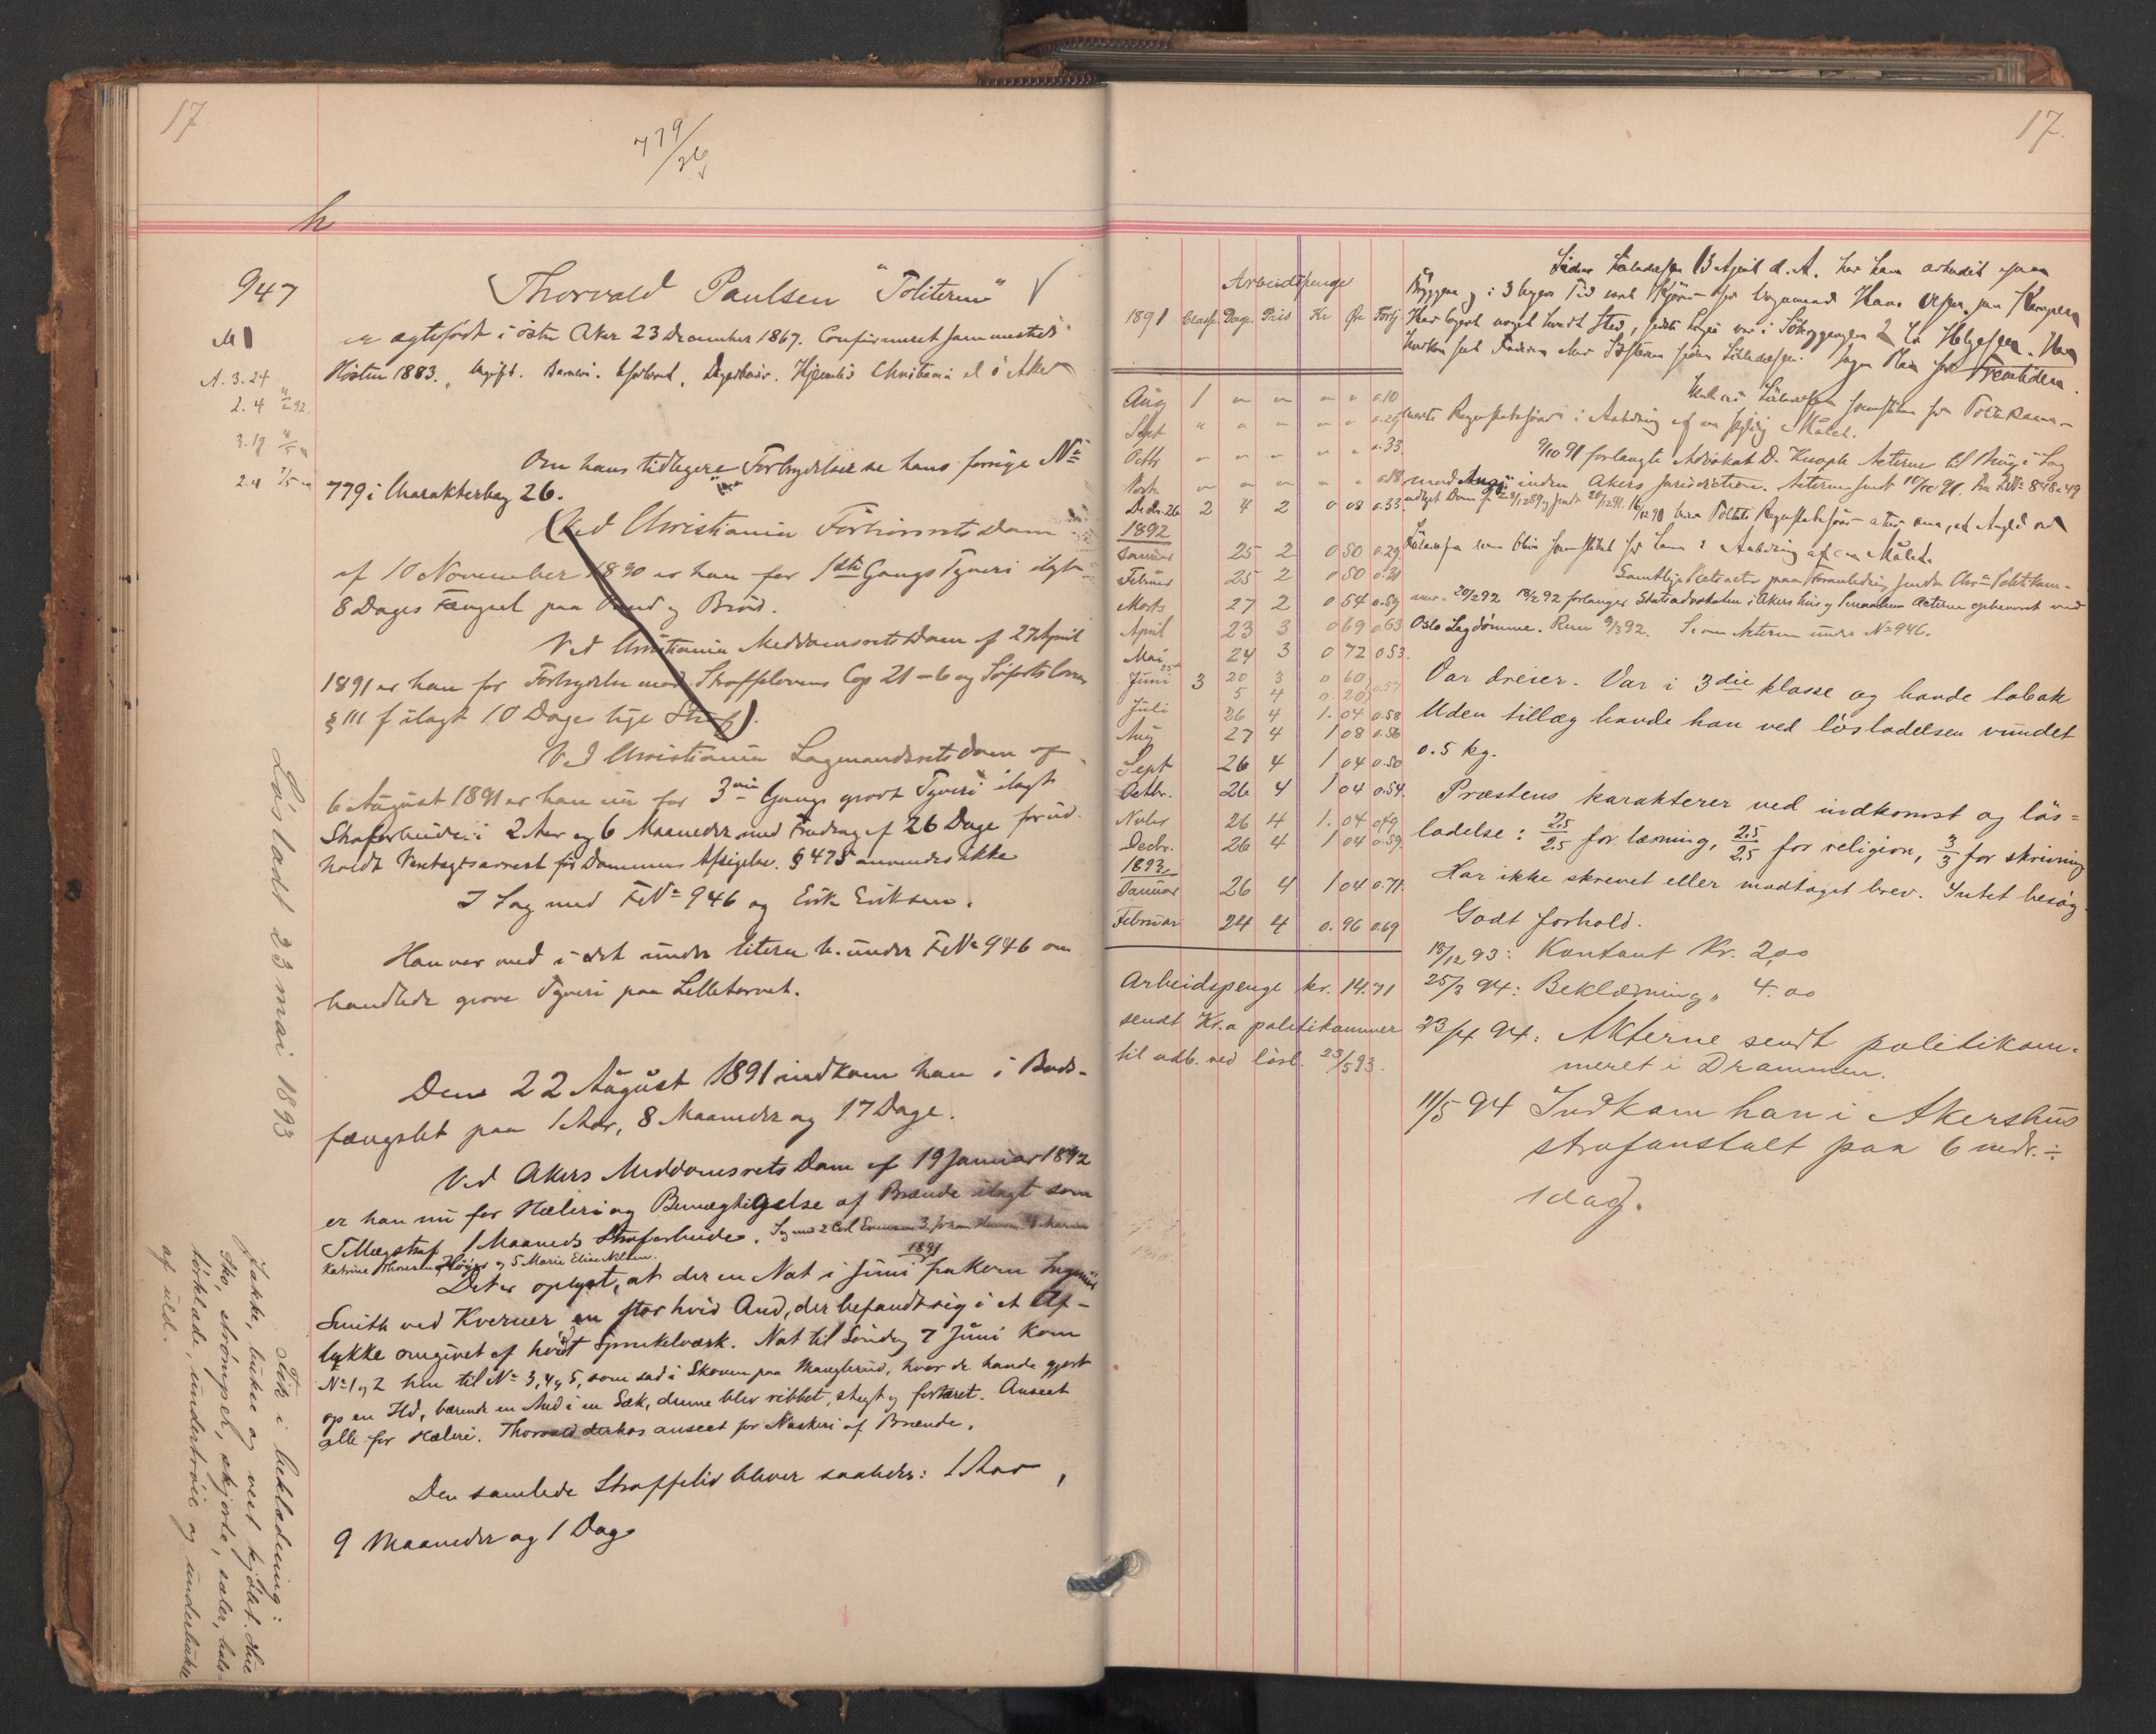 17
779/26
h
947
M
A. 3.24
2.4
3.19
2.4 7/5
Thorvald Paulsen "Politeren"
er ægtefødt i östre Aker 23 December 1867. Confirmeret sammesteds
Hösten 1883. Ugift. Barnløs. Uforlovet. Dagarbeider. Hjemsted Christiania el. i Aker
Om hans tidligere Forbrydelser se hans forrige No
779 i Charakterbog 26.
(Ved Christiania Forhörsrets Dom
af 10 November 1890 er han for 1ste Gangs Tyveri ilagt
8 Dages Fængsel paa Vand og Bröd.
Ved Christiania Meddomsrets Dom af 27 April
1891 er han for Forbrydelse mod Straffelovens Cap 21-6 og Söfartsloven
§ 111 f ilagt 10 Dages lige Straf).
Ved Christiania Lagmandsrets dom af
6 August 1891 er han nu for 3die Gang grovt Tyveri ilagt
Strafarbeide i 2 Aar og 6 Maaneder med Fradrag af 26 Dage for ud-
holdt Varetægtsarrest før Dommens Afsigelse. § 475 anvendes ikke
I Sag med FNo 946 og Erik Eriksen.
Han var med i det under litera h. under FNo 946 om
handlede grove Tyveri paa Lilletorvet.
Den 22 August 1891 indkom han i Bods-
fængslet paa 1 Aar, 8 Maaneder og 17 Dage.
Ved Akers Meddomsrets Dom af 19 Januar 1892
er han nu for Hæleri og Bemægtigelse af Brænde ilagt som
Tillægsstraf 1 Maaneds Strafarbeide. Sag med 2 Carl 3 Johan Hansen 4 Maren
Katrine Thoresen og 5 Marie Elise Nilsen.
Det er oplyst, at der en Nat i Juni 1891 frakom Ingeniör
Smith ved Kverner en stor hvid And, der befandt sig i et Af-
lykke omgivet af hvidt Sprinkelværk. Nat til Söndag 7 Juni kom
No 1 og 2 hen til No 3, 4 og 5, som sad i Skoven paa Manglerud, hvor de havde gjort
op en Ild, bærende en And i en Sæk, denne blev ribbet, stegt og fortæret. Anseet
alle for Hæleri. Thorvald derhos anseet for Naskeri af Brænde.
Den samlede Straffetid bliver saaledes: 1 Aar,
9 Maaneder og 1 Dag
Lösladt 23 mai 1893
Fik i beklædning:
Jakke, bukse og vest kjöbt. Hue
Sko, strömper, skjorte, seler, hals-
törklæde, undertröie og underbukse
af uld.
17.
Arbeidspenge
1891 Classe. Dage. Pris Kr Öre Fortj.
Aug 1 " " " " 0.10
Sept " " " " " 0.29
Octbr " " " " " 0.33
Novbr " " " " "
Decbr. 26 2 4 2 0 08 0.33
1892
Januar 25 2 0 50 0.29
Februar 25 2 0 50 0.31
Marts 27 2 0 54 0.59
April 23 3 0 69 0.63
Mai 24 3 0 72 0.53.
Juni 3 20 3 0 60
5 4 0.20 0.57
Juli 26 4 1.04 0.58
Aug 27 4 1 08 0.56
Sept 26 4 1 04 0.50
Octbr. 26 4 1 04 0.54.
Novbr 26 4 1.04 0.49
Decbr. 26 4 1 04 0.59
1893
Januar 26 4 1 04 0.71.
Februar 24 4 0.96 0.69
Arbeidspenge kr. 14.71
sendt Kr.a politikammer
til udb. ved lösl. 23/5 93.
Siden Lösladelsen 13 April d. A. har han arbeidet paa
Bryggen og i 3 Ugers Tid vært Kjører for Vognmand Hans
Har logeret noget hvidt Sted, sidste Logis var i
hverken set Faderen eller Søsteren siden Lösladelsen. Ingen Plan for Fremtiden.
Under Lösladelsen
merets Regnskabsförer i Anledning af en
9/10 91 forlangte Advokat D. Knoph Acterne til Brug i Sag
mod inden Akers Jurisdiction. Acterne sendt 10/10 91. Fra No 848-49
Samtlige Acter paa Foranledning sendt Chr.a Politikam-
mer. 20/2 92 18/2 92 forlanger Statsadvokaten i Akershus og Acterne opbevaret ved
Oslo Lagdömme. Rem 9/3 92. Se om Acterne under No 946.
Var dreier. Var i 3die klasse og havde tobak
Uden tillæg havde han ved lösladelsen vundet
0.5 kg.
Præstens karakterer ved indkomst og lös=
ladelse: 2.5/2.5 for læsning, 2.5/2.5 for religion, 3/3 for skrivning
Har ikke skrevet eller modtaget brev. Intet besög.
Godt forhold.
18/12 93: Kontant Kr. 2,00
25/3 94: Beklædning " 4.00
23/4 94: Akterne sendt politikam-
meret i Drammen.
11/5 94 Indkom han i Akershus
strafanstalt paa 6 mdr. ÷
1 dag.